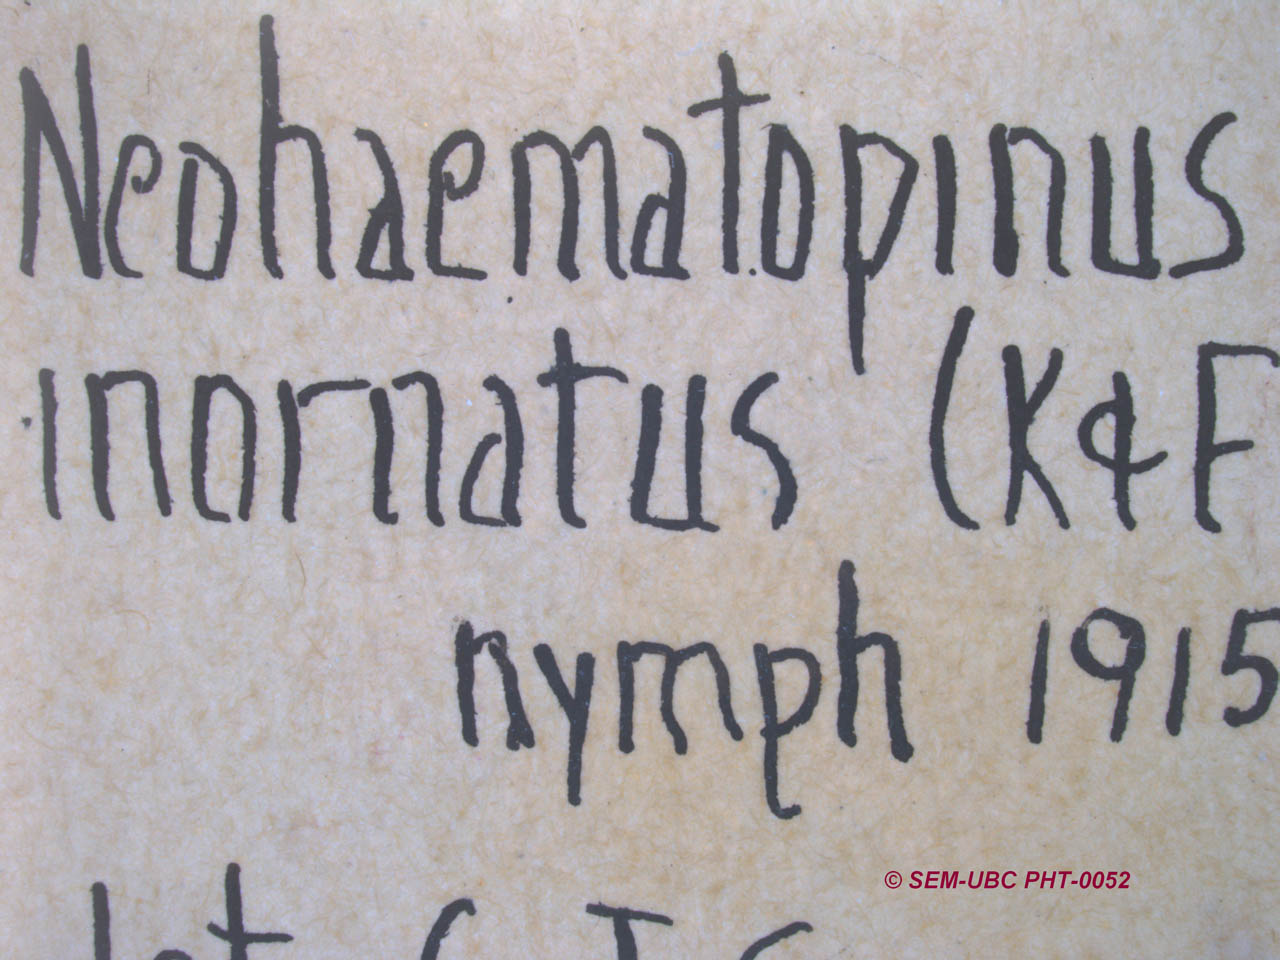 Neohaematopinus
inornatus (K&F
nymph 1915
© SEM-UBC PHT-0052